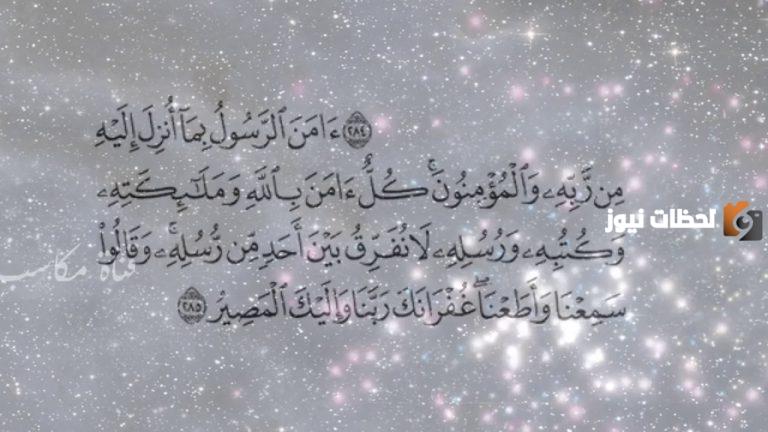 ﴿٢٨٤﴾ ءَامَنَ ٱلرَّسُولُ بِمَآ أُنزِلَ إِلَيْهِ
مِن رَّبِّهِۦ وَٱلْمُؤْمِنُونَۚ كُلٌّ ءَامَنَ بِٱللَّهِ وَمَلَٰٓئِكَتِهِۦ
وَكُتُبِهِۦ وَرُسُلِهِۦ لَا نُفَرِّقُ بَيْنَ أَحَدٍ مِّن رُّسُلِهِۦۚ وَقَالُوا۟
سَمِعْنَا وَأَطَعْنَاۖ غُفْرَانَكَ رَبَّنَا وَإِلَيْكَ ٱلْمَصِيرُ ﴿٢٨٥﴾
لحظات نيوز
قناة مكاسب